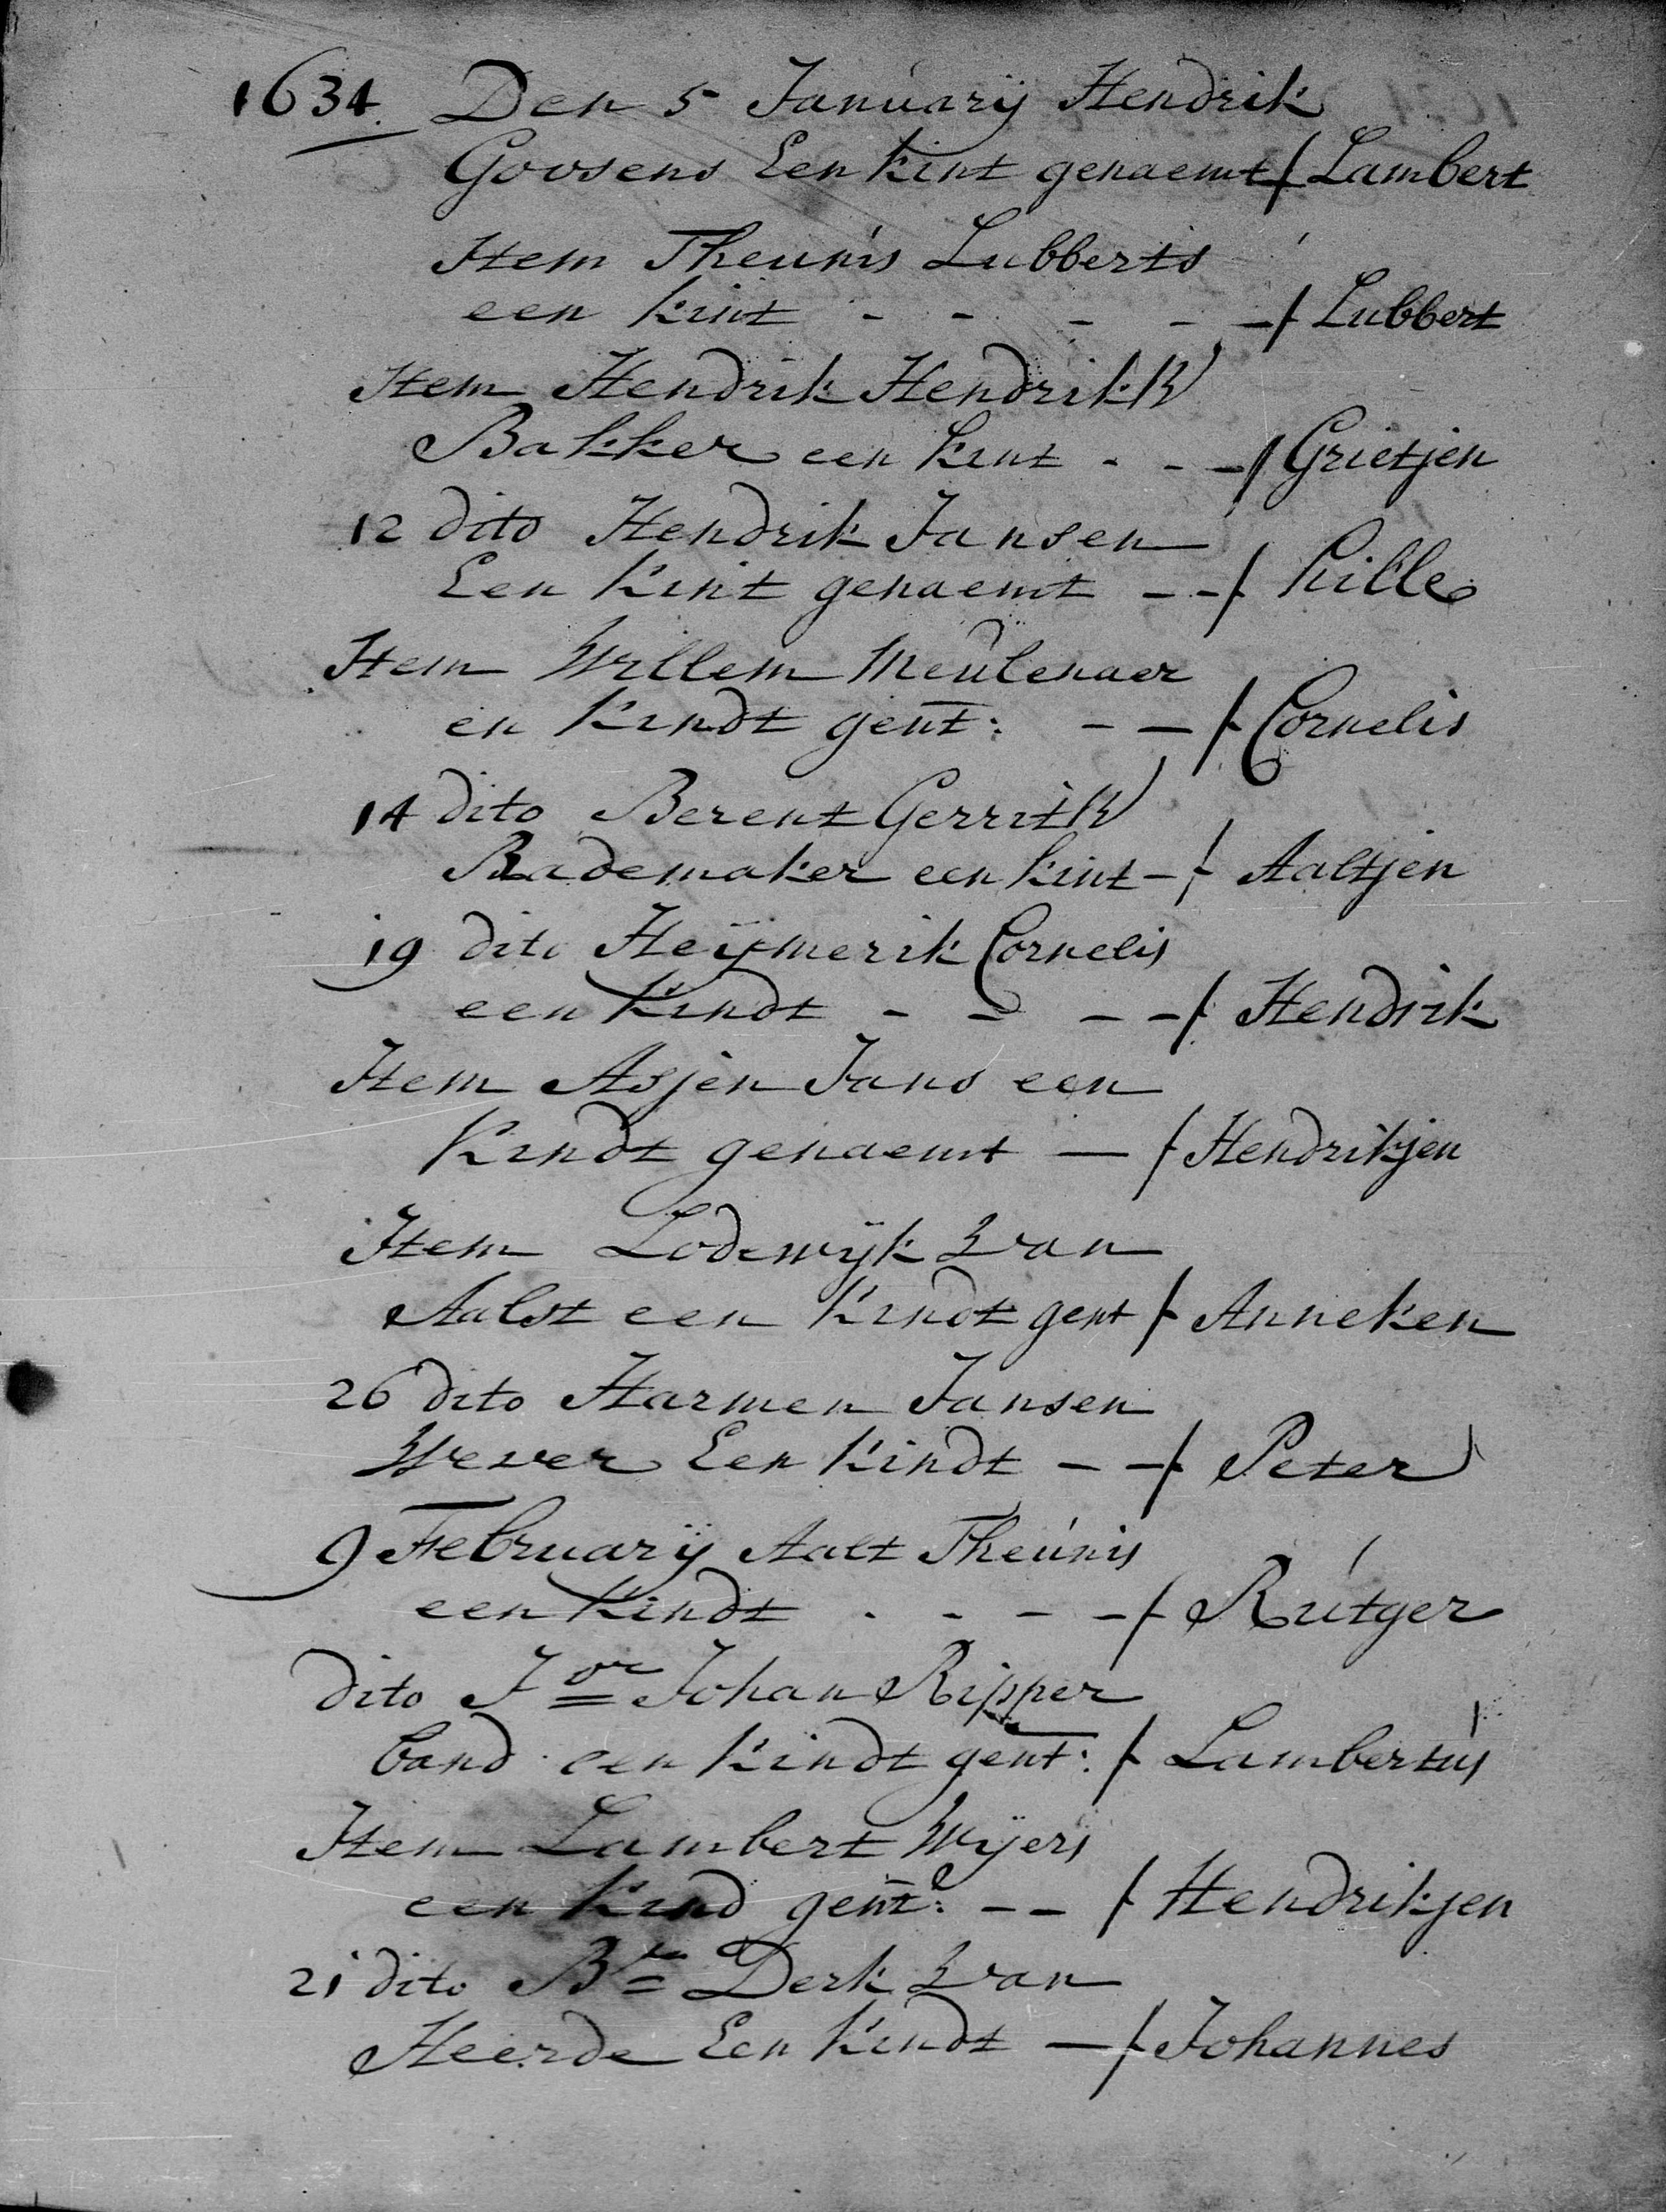 1634. Den 5 Januarij Hendrik
Goosens Een kint genaemt / Lambert
Item Theunis Lubberts
een kint - - - - - / Lubbert
Item Hendrik Hendriks
Bakker een kint - - - / Grietjen
12 dito Hendrik Jansen
Een kint genaemt - - / Lille
Item Willem Meulenaer
en kindt gent: - - / Cornelis
14 dito Berent Gerrits
Rademaker een kint - / Aaltjen
19 dito Heijmerik Cornelis
een kindt - - - - / Hendrik
Item Asjen Jans een
kindt genaemt - / Hendrikjen
Item Lodewijk van
Aalst een kindt gent / Anneken
26 dito Harmen Jansen
Wever Een kindt - - / Peter
9 February Aalt Theunis
een kindt - - - - / Rutger
dito Jor Johan Ripper
band een kindt gent: / Lambertus
Item Lambert Wijers
een kind gent: - - / Hendrikjen
21 dito Br Derk van
Heerde Een kindt - / Johannes